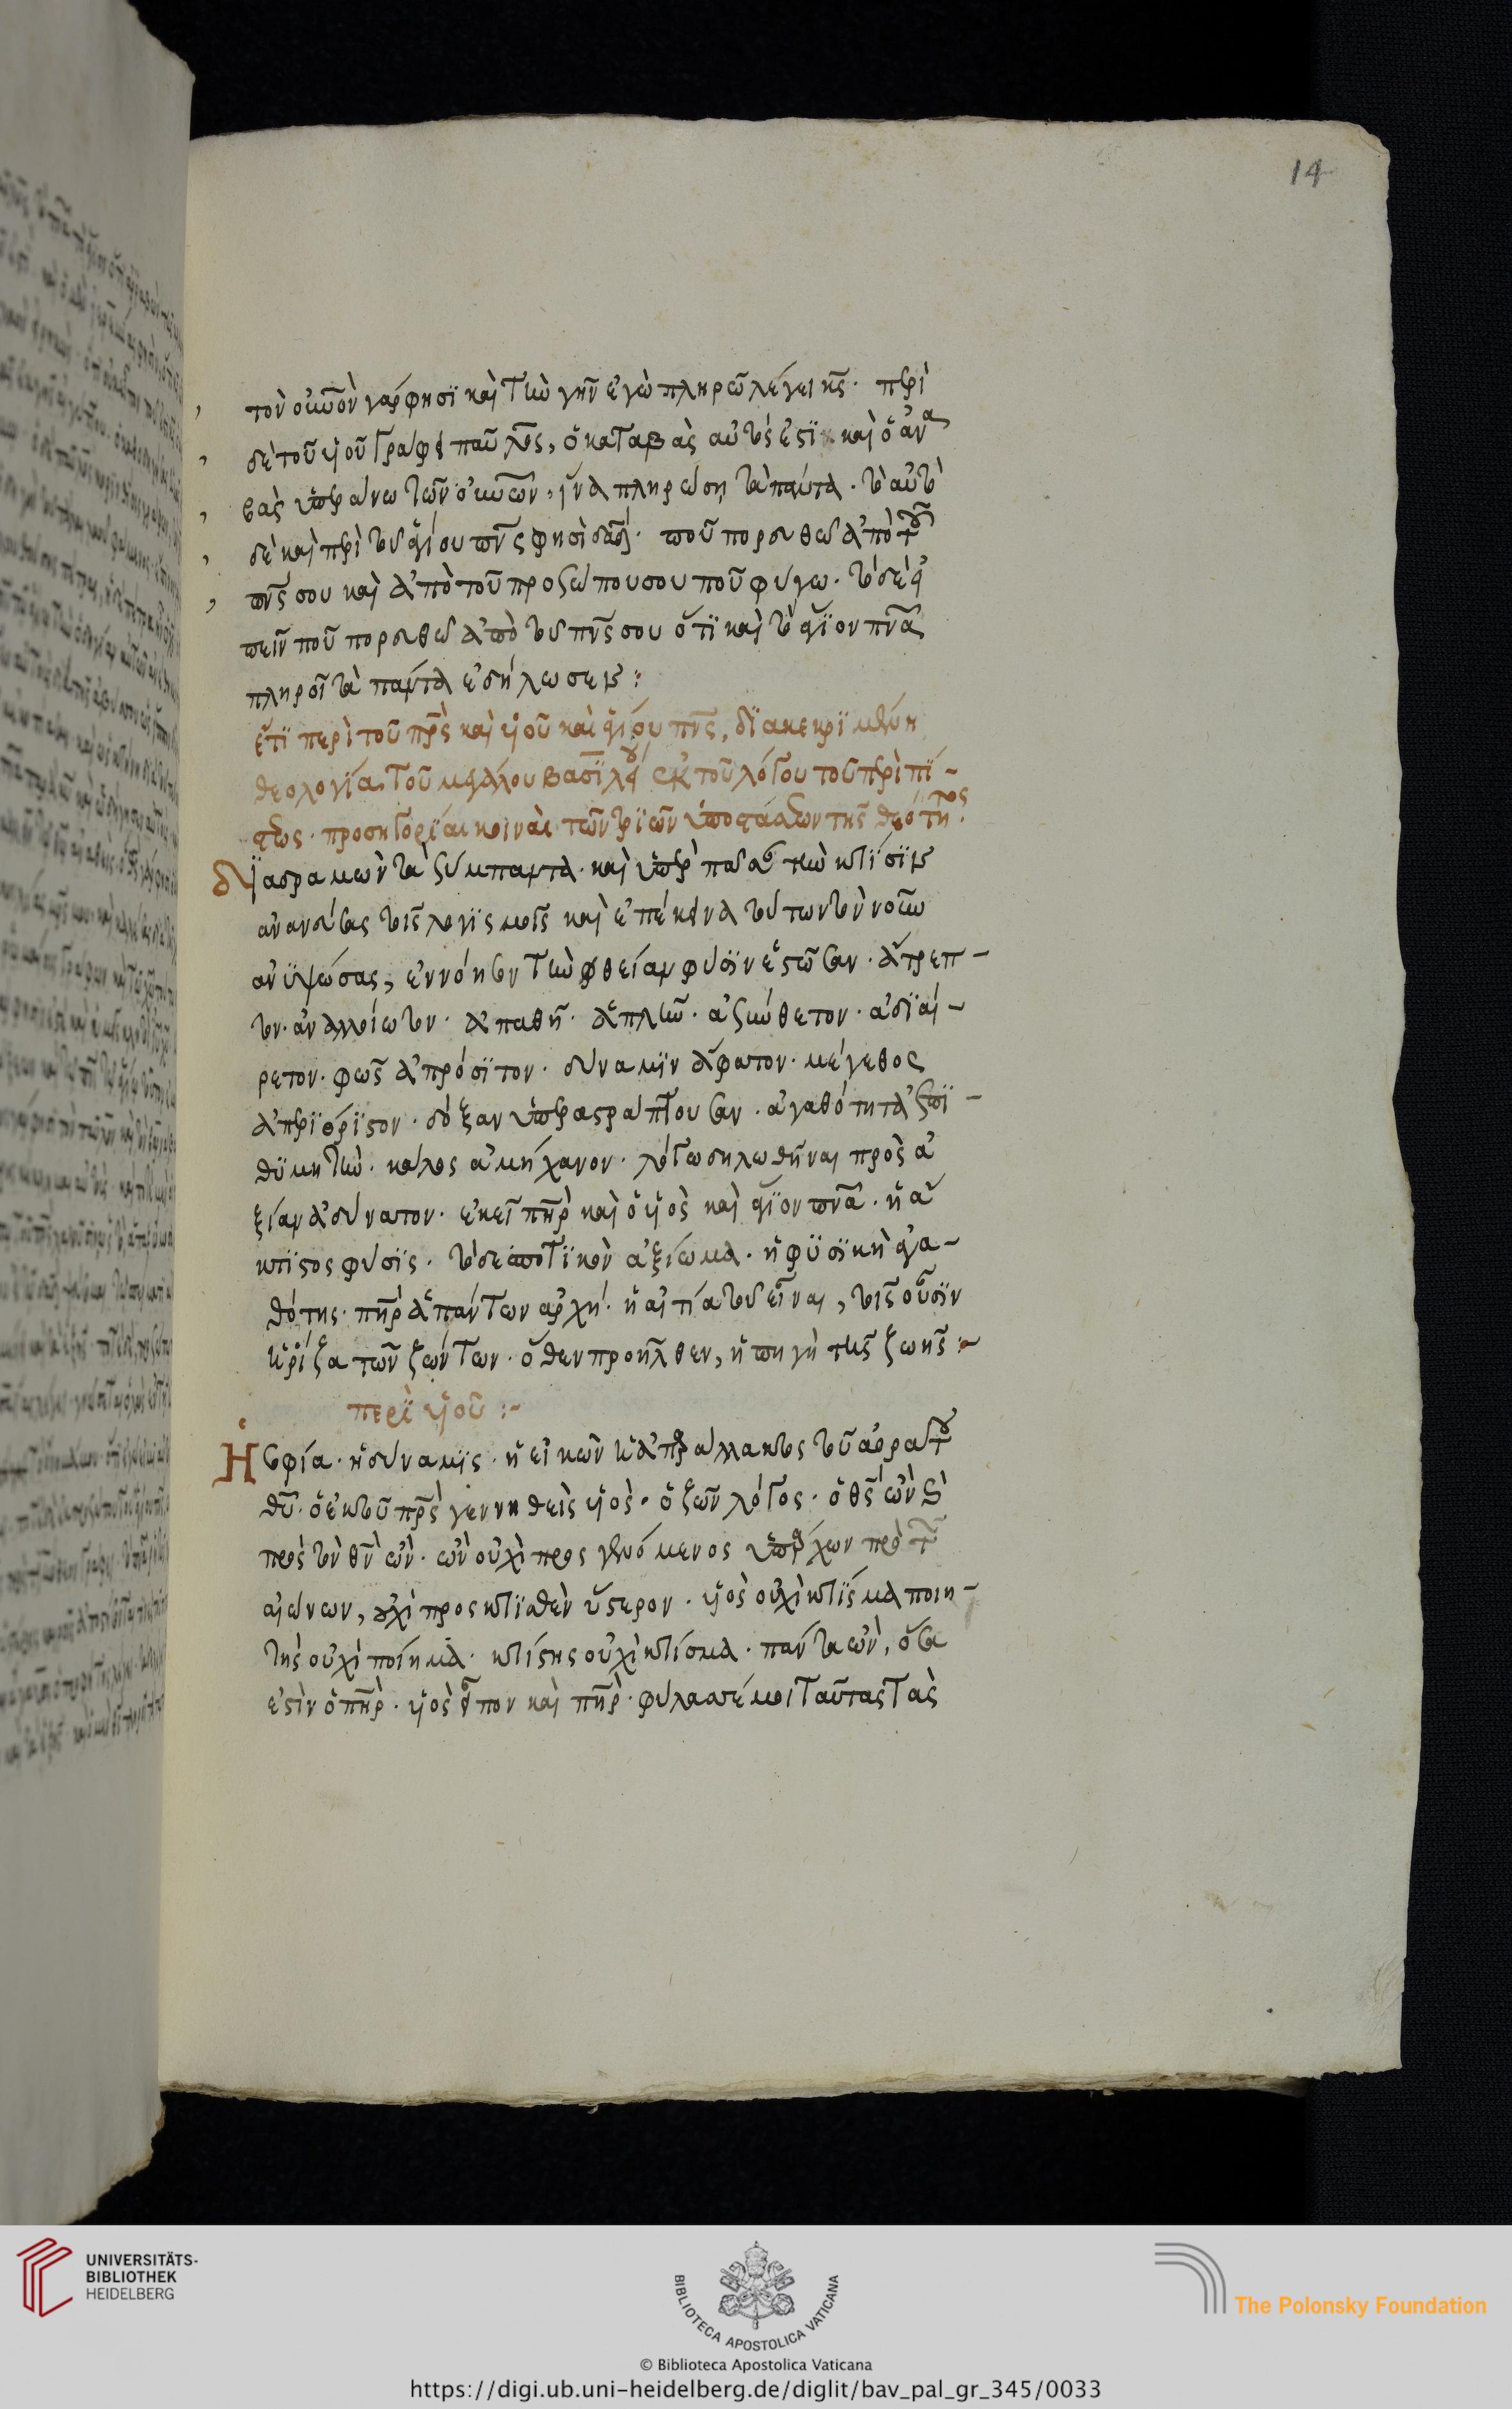 14
τὸν οὐνὸν γὰρ φησὶ καὶ τὴν γῆν ἐγὼ πληρῶ λέγει κς· περὶ
δὲ τοῦ υἱοῦ γράφει παῦλος, ὁ καταβὰς αὐτός ἐστϊ καὶ ὁ ἀνα
βὰς ὑπεράνω τῶν οὐνῶν, ἵνα πληρώση τὰ πάντα· τὸ αὐτὸ
δὲ καὶ περὶ τοῦ ἁγίου πνς φησὶ δαδ· ποῦ πορευθῶ ἀπὸ τοῦ
πνς σου καὶ ἀπὸ τοῦ προσώπου σου ποῦ φύγω· τὸ δὲ εἰ
πεῖν ποῦ πορευθῶ ἀπὸ τοῦ πνς σου ὅτϊ καὶ τὸ ἅγϊον πνα
πληροῖ τὰ πάντα ἐδήλωσεν:
ἔτϊ περὶ τοῦ πρς καὶ υἱοῦ καὶ ἁγίου πνς, δϊακεκρϊμένη
θεολογία τοῦ μεγάλου βασϊλείου ἐκ τοῦ λόγου τοῦ περὶ πί-
στεως· προσηγορίαι κοιναὶ τῶν τρϊῶν ὑποστάσεων τῆς θεότητος·
δϊαδραμὼν τὰ σύμπαντα· καὶ ὑπὲρ πᾶσαν τὴν κτίσϊν
ἀνανεύσας τοῖς λογϊσμοῖς καὶ ἐπέκεινα τούτων τὸν νοῦν
ἀνϋψώσας, ἐννόησον τὴν θείαν φύσϊν ἑστῶσαν· ἄτρεπ-
τον· ἀναλλοίωτον· ἀπαθῆ· ἁπλῆν· ἀσύνθετον· ἀδϊαί-
ρετον· φῶς ἀπρόσϊτον· δύναμϊν ἄφατον· μέγεθος
ἀπερϊόρϊστον· δόξαν ὑπεραστράπτουσαν· ἀγαθότητα ἐπϊ-
θϋμητὴν· κάλος ἀμήχανον· λόγω δηλωθῆναι πρὸς ἀ
ξίαν ἀδύνατον· ἐκεῖ πηρ καὶ ὁ υἱὸς καὶ ἅγϊον πνα· ἡ ἄ
κτϊστος φύσϊς· τὸ δεσποτϊκὸν ἀξίωμα· ἡ φϋσϊκὴ ἀγα-
θότης· πηρ ἁπάντων ἀρχή· ἡ αἰτία τοῦ εἶναι, τοῖς οὖσϊν
ἡ ῥίζα τῶν ζώντων· ὅθεν προῆλθεν, ἡ πηγὴ τῆς ζωῆς:-
περϊ υἱοῦ:-
Ἡ σοφία· ἡ δύναμϊς· ἡ εἰκὼν ἡ ἀπαράλλακτος τοῦ ἀοράτου
θυ· ὁ ἐκ τοῦ πρς γεννηθεὶς υἱὸς· ὁ ζῶν λόγος· ὁ θς ὢν καὶ
πρὸς τὸν θν ὢν· ὢν οὐχὶ προσγενόμενος ὑπάρχων πρὸ τῶν
αἰώνων, οὐχὶ προσκτϊσθὲν ὕστερον· υἱὸς οὐχὶ κτῖσμα ποιη-
τὴς οὐχὶ ποίημα· κτίστης οὐχὶ κτίσμα· πάντα ὢν, ὅσα
ἐστὶν ὁ πηρ· υἱὸς εἶπον καὶ πηρ· φύλασσέ μοι ταύτας τὰς
UNIVERSITÄTS-
BIBLIOTHEK
HEIDELBERG
BIBLIOTECA APOSTOLICA VATICANA
The Polonsky Foundation
© Biblioteca Apostolica Vaticana
https://digi.ub.uni-heidelberg.de/diglit/bav_pal_gr_345/0033